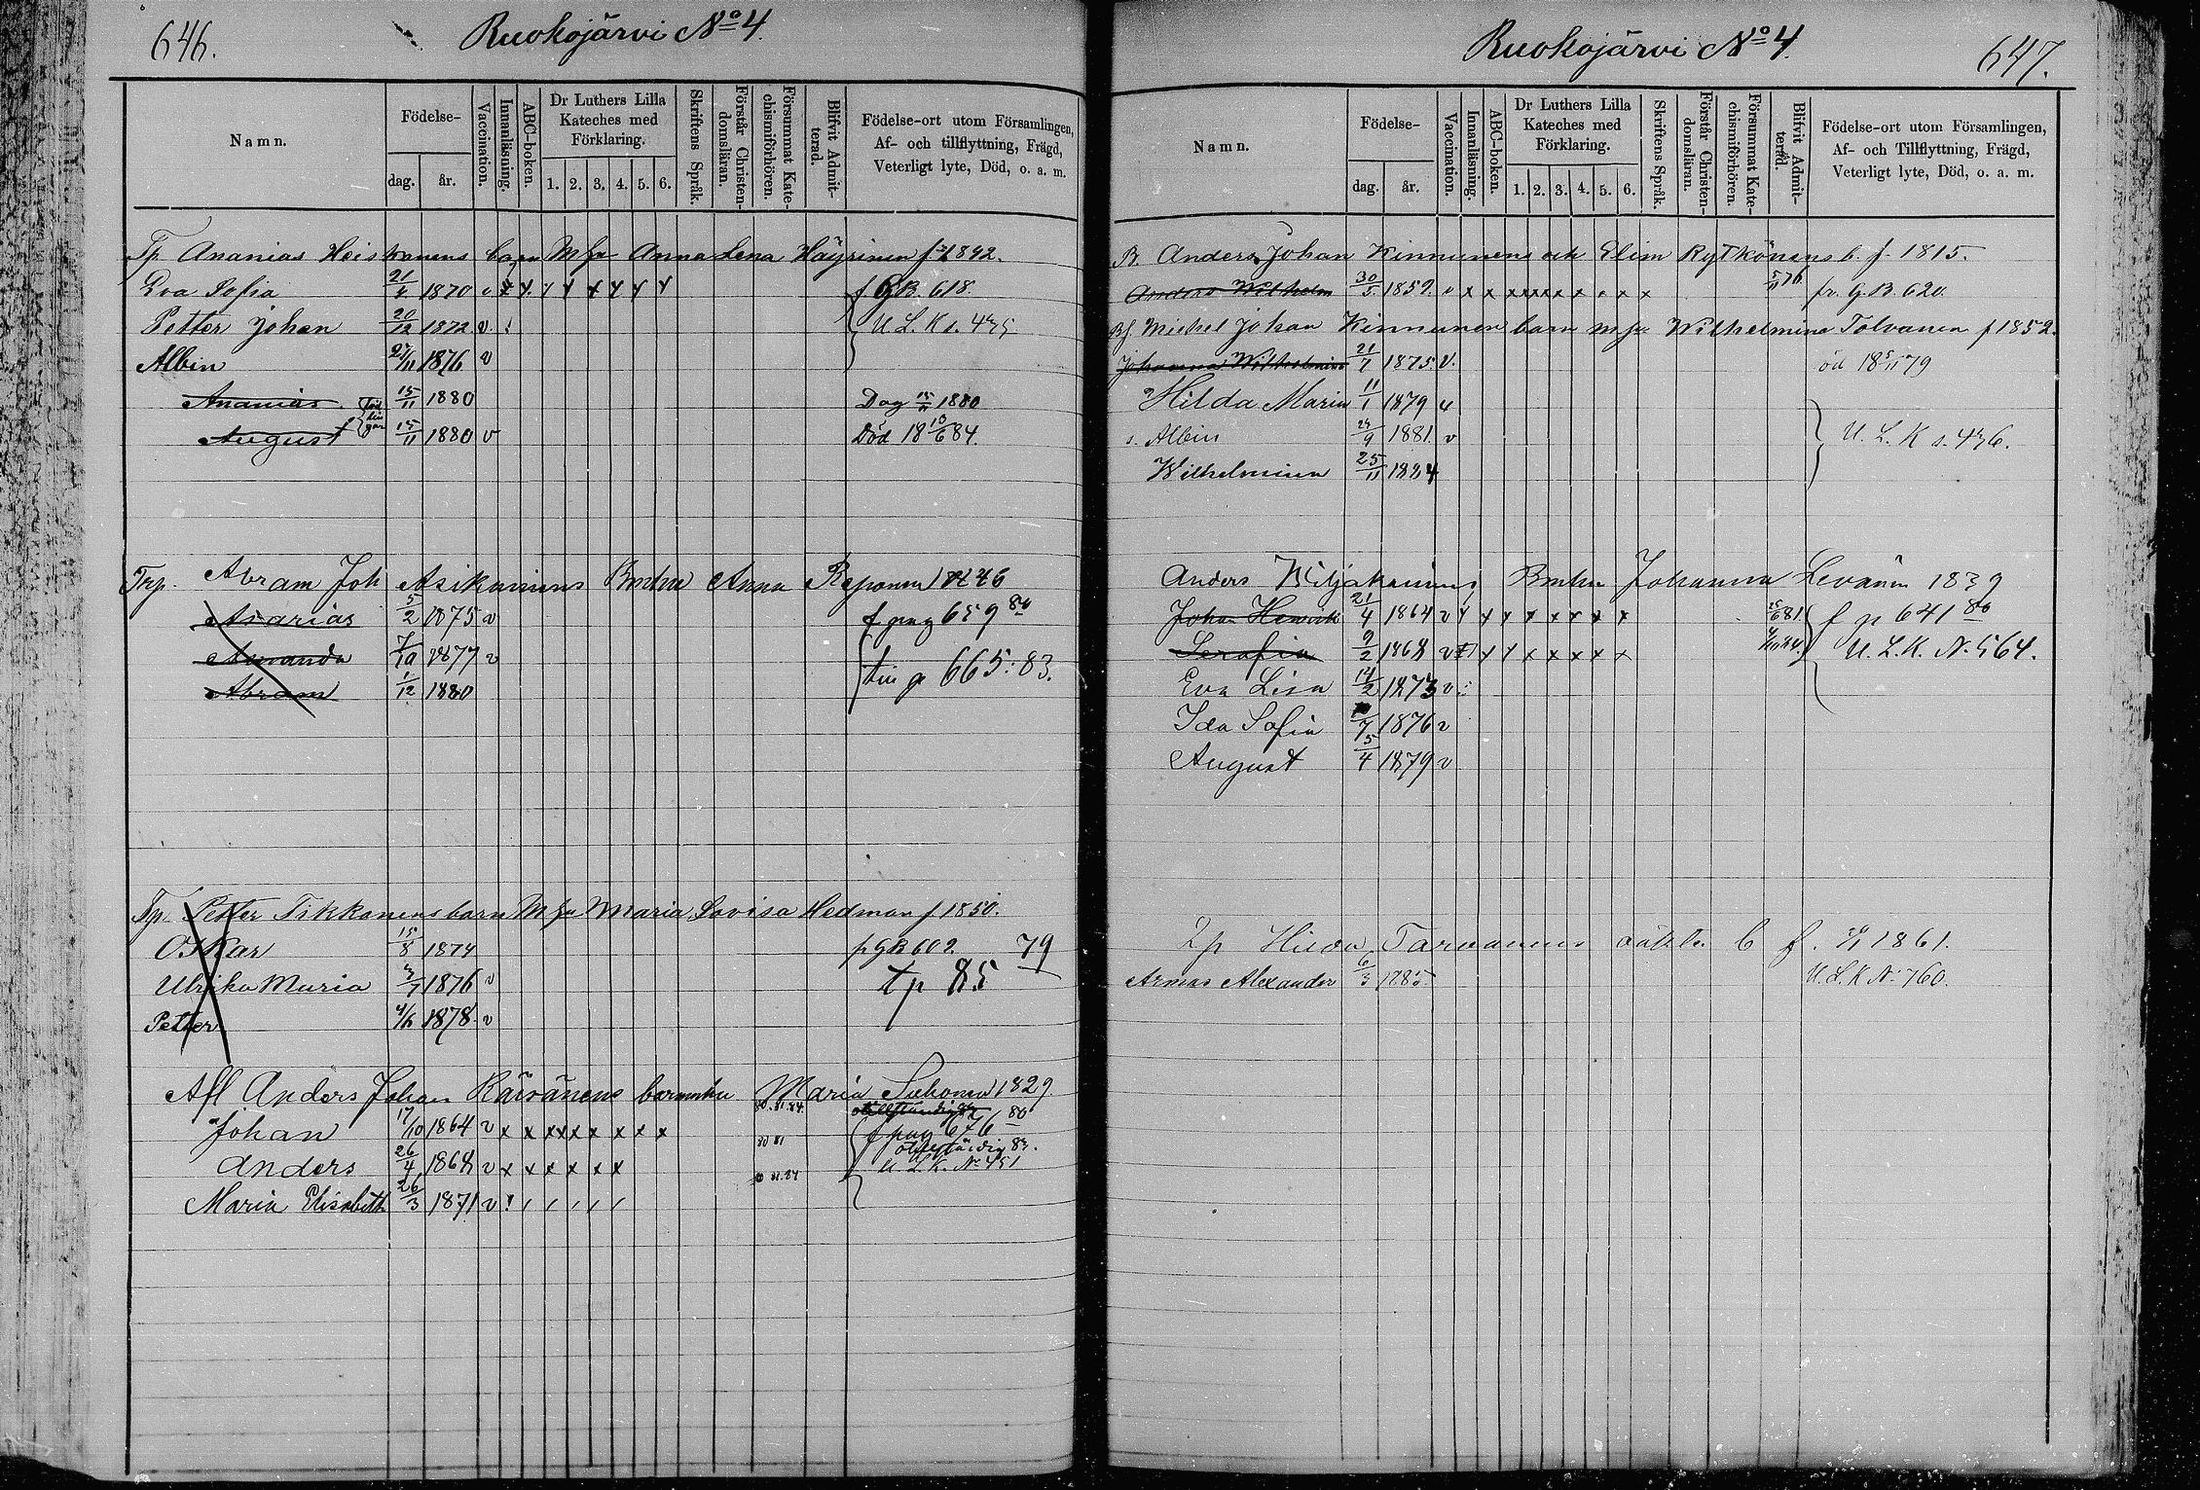 646. Ruokojärvi No 4.
Namn. Födelse- dag. år. Vaccination. Innanläsning. ABC-boken. Dr Luthers Lilla Kateches med Förklaring. 1. 2. 3. 4. 5. 6. Skriftens Språk. Förstår Christendomsläran. Försummat Katechismiförhören. Blifvit Admitterad. Födelse-ort utom Församlingen, Af- och tillflyttning, Frägd, Veterligt lyte, Död, o. a. m.
Tp Ananias Heiskanens barn Mfa Anna Lena Häyrinen f 1842.
Eva Sofia 21/4 1870 v x x x x x x x x f GB. 618.
Petter Johan 20/12 1872 v U. L. K s. 435
Albin 27/11 1876 v
Ananias 15/11 1880 Dog 15/11 1880
August 15/11 1880 v Död 18 13/6 84.
Trp. Abram Joh Asikainens Bmha Anna Reponen 1846
Asarias 5/2 1875 v f pag 659 80
Amanda 7/10 1877 v till p 665: 83.
Abram 1/12 1880
Tp. Petter Tikkanens barn Mfa Maria Lovisa Hedman f 1850.
Oskar 15/8 1874 f GB 602. 79
Ulrika Maria 3/7 1876 v tp 85
Petter 4/6 1878 v
Afl Anders Johan Räisänens barn mha Maria Suhonen 1829.
Johan 17/10 1864 v x x x x x x x x x 80. 81. 84. f pag 676 80
Anders 26/4 1868 v x x x x x x x 80 81 83.
U. L. K. No 451
Maria Elisabeth 26/3 1871 v
Ruokojärvi No 4. 647.
Namn. Födelse- dag. år. Vaccination. Innanläsning. ABC-boken. Dr Luthers Lilla Kateches med Förklaring. 1. 2. 3. 4. 5. 6. Skriftens Språk. Förstår Christendomsläran. Försummat Katechismiförhören. Blifvit Admitterad. Födelse-ort utom Församlingen, Af- och Tillflyttning, Frägd, Veterligt lyte, Död, o. a. m.
B. Anders Johan Kinnunens och Elim Rytkönens b. f. 1815.
Anders Wilhelm 30/5 1859. v x x x x x x x x x 5/11 76 fr. G.B. 620.
Bf. Michel Johan Kinnunen barn mfa Wilhelmina Tolvanen f 1852.
Johanna Wilhelmina 21/7 1875. v. öd 18 5/11 79
Hilda Maria 11/1 1879 v
s. Albin 29/9 1881. v U. L. K s. 436.
Wilhelmina 25/11 1884
Anders Wiljakainens Bmha Johanna Levänen 1839
Johan Henrik 21/4 1864 v x x x x x x x x 81 f p 641 80
Serafia 9/2 1868 v x x x x x x x 84. U. L. K. N. 564.
Eva Lisa 14/2 1873 v
Ida Sofia 7 1876 v
August 5/4 1879 v
Tp Hilda Tarvainens oäkta b f. 1861.
Armas Alexander 6/3 1885 U. L. K No 760.